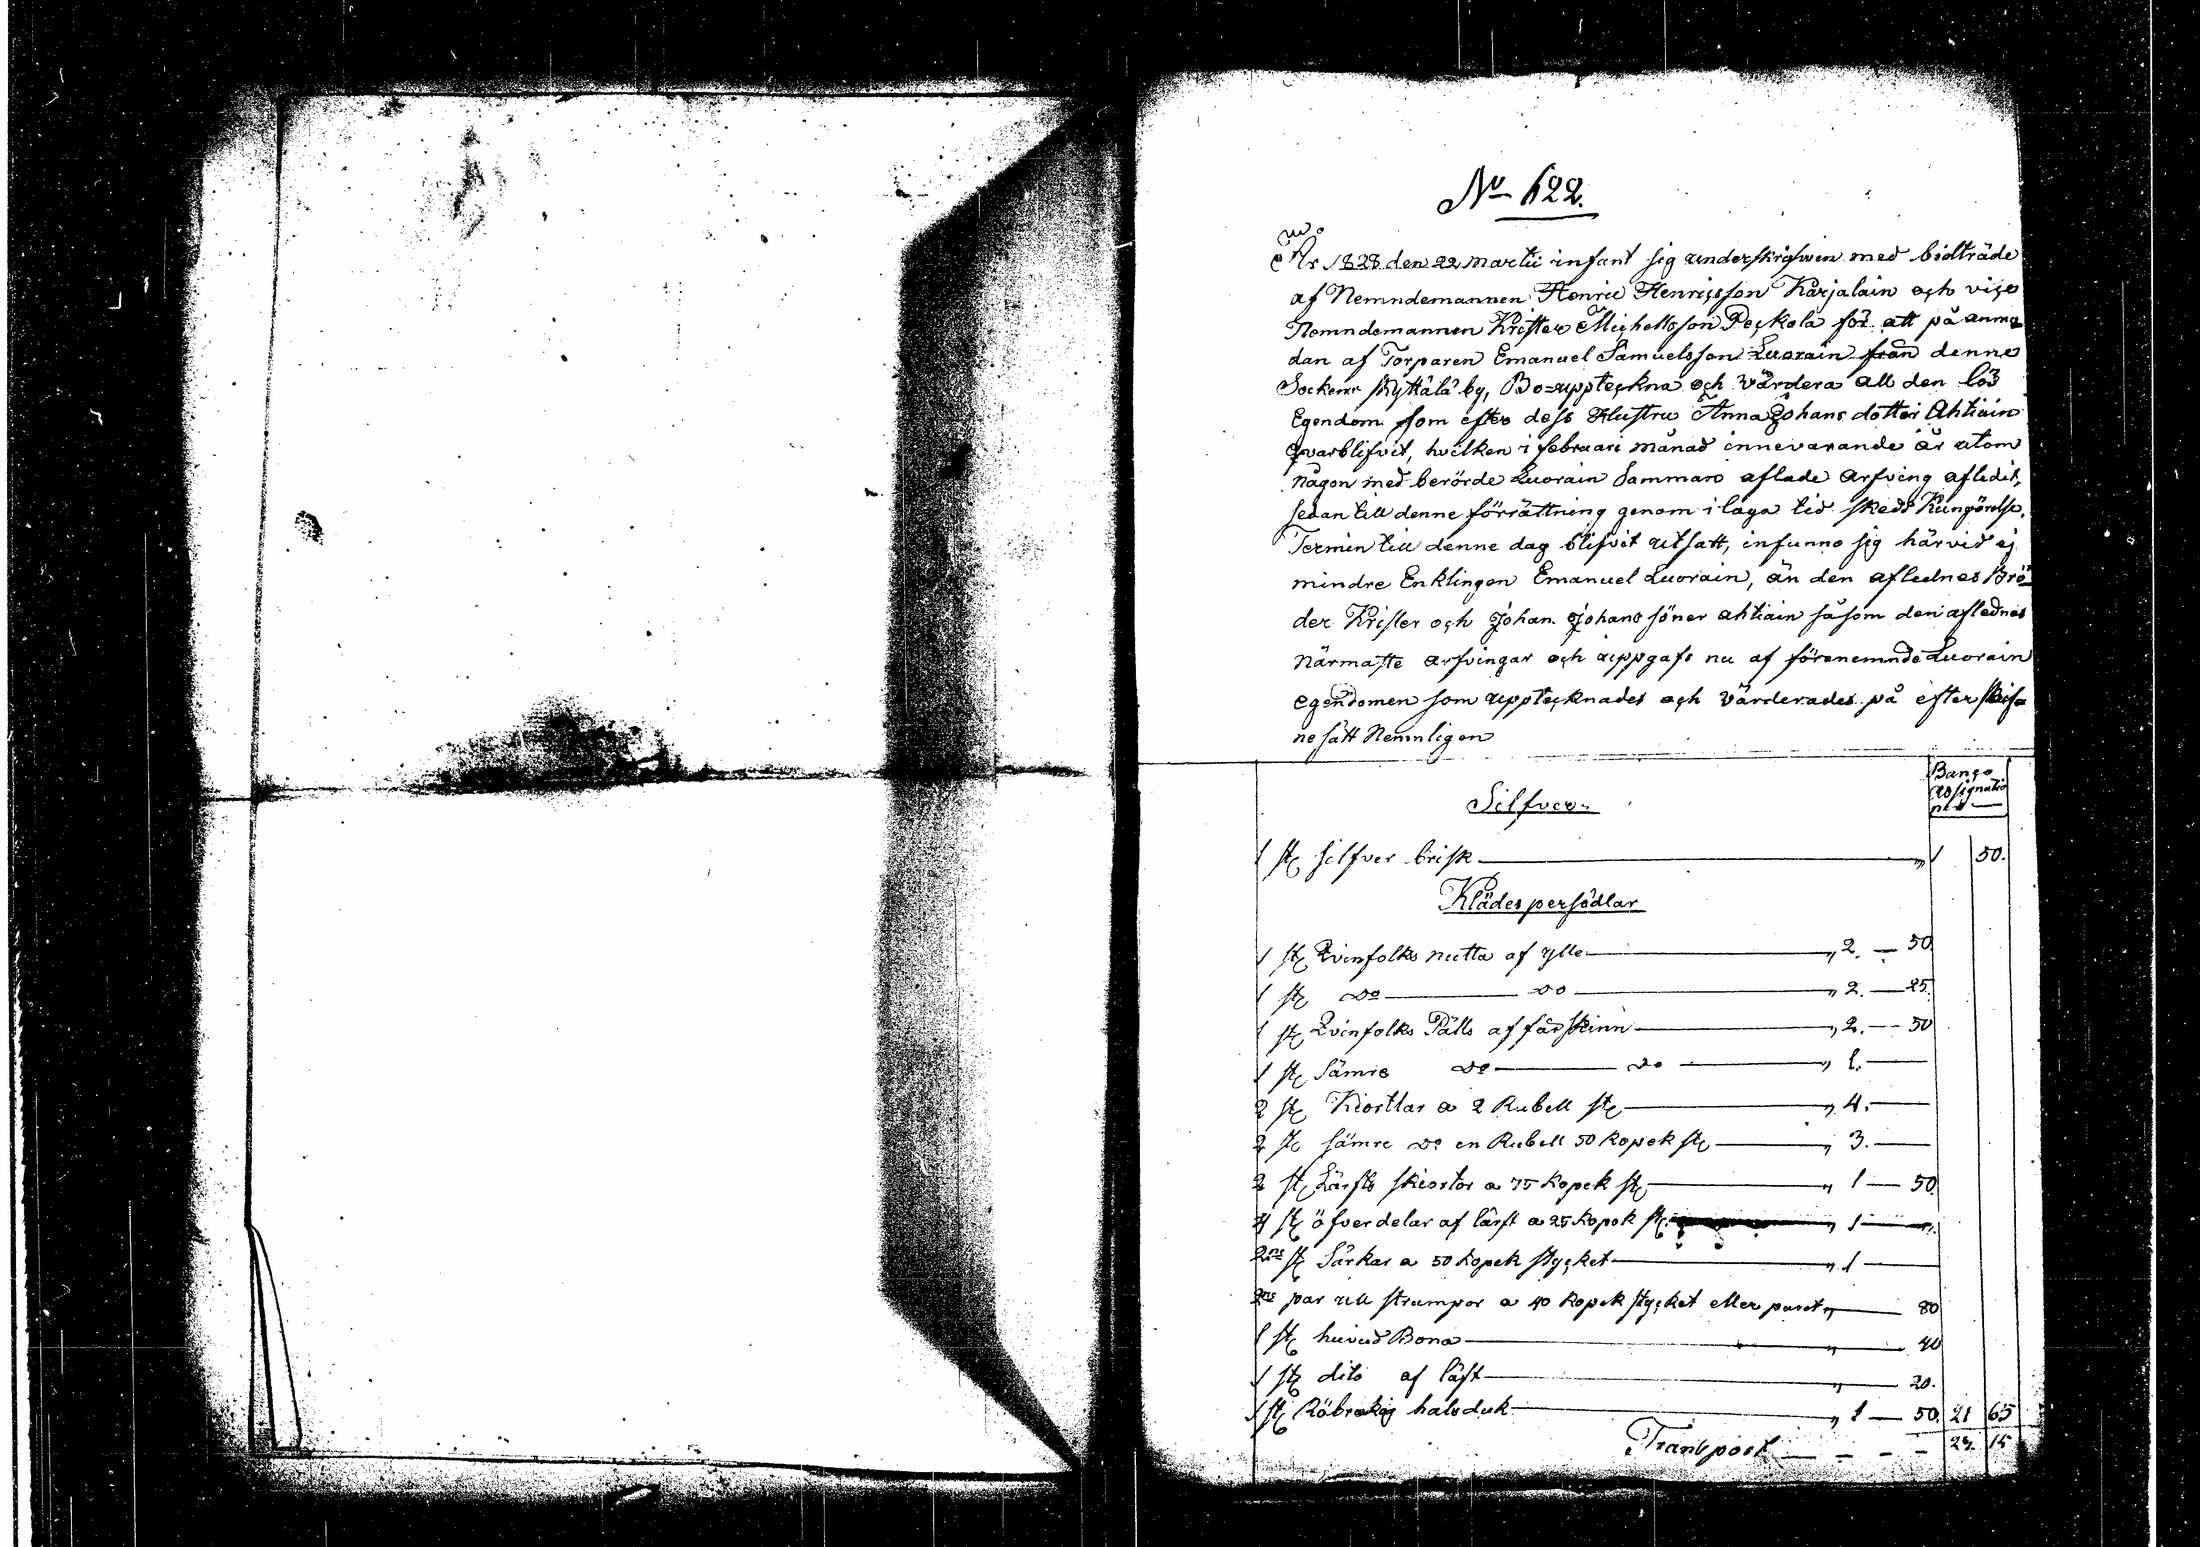 No 622.
År 1828 den 22 Martii infant sig underskrifwen med bidträde
af Nemndemannen Henric Henricsson Karjalain och viçe
Nemndemannen Krister Michellsson Peçkola för att på anma
dan af Torparen Emanuel Samuelsson Luorain från denne
Socken Kyttälä by, Bo=uppteçkna och Värdera all den lös
Egendom som efter dess Hustru Anna Johans dotter Ahtiain
Qvarblifvit, hvilken i februari månad innevarande år utom
någon med berörde Luorain Samman aflade arfving afledit,
sedan till denne förrättning genom i laga tid skedd Kungörelse.
Termin till denne dag blifvit utsatt, infunno sig härvid ej
mindre Enklingen Emanuel Luorain, än den aflednes Brö=
der Krister och Johan Johans söner ahtiain såsom den aflednes
närmaste arfvingar och uppgafs nu af förenemnde Luorain
egendomen som uppteçknades och Värderades på efter skifn
ne sätt Nemnligen
Banço
assignatio
ner
Silfver
1 st silfver brisk " 1 50.
Klädespersedlar
1 st Qvinfolks mutta af ylle " 2. — 50
1 st do do " 2. — 25.
1 st Qvinfolks Pälls af fårskinn " 2. — 50
1 st Sämre do do " 1. —
2 st Kiortlar a 2 Rubell st " 4. —
2 st sämre do en Rubell 50 Kopek st " 3. —
2 st Lärfts skiortor a 75 Kopek st " 1 — 50.
4 st öfverdelar af lärft a 25 Kopek st " 1 —
2ne st Särkar a 50 Kopek styçket " 1 —
2ne par ull strumpor a 40 Kopek styçket eller paret " — 80
1 st huvud Bona " — 40
1 st dito af läft " — 20.
1 st Röbrokig halsduk " 1 — 50. 21 65
Transport — — — 23. 15